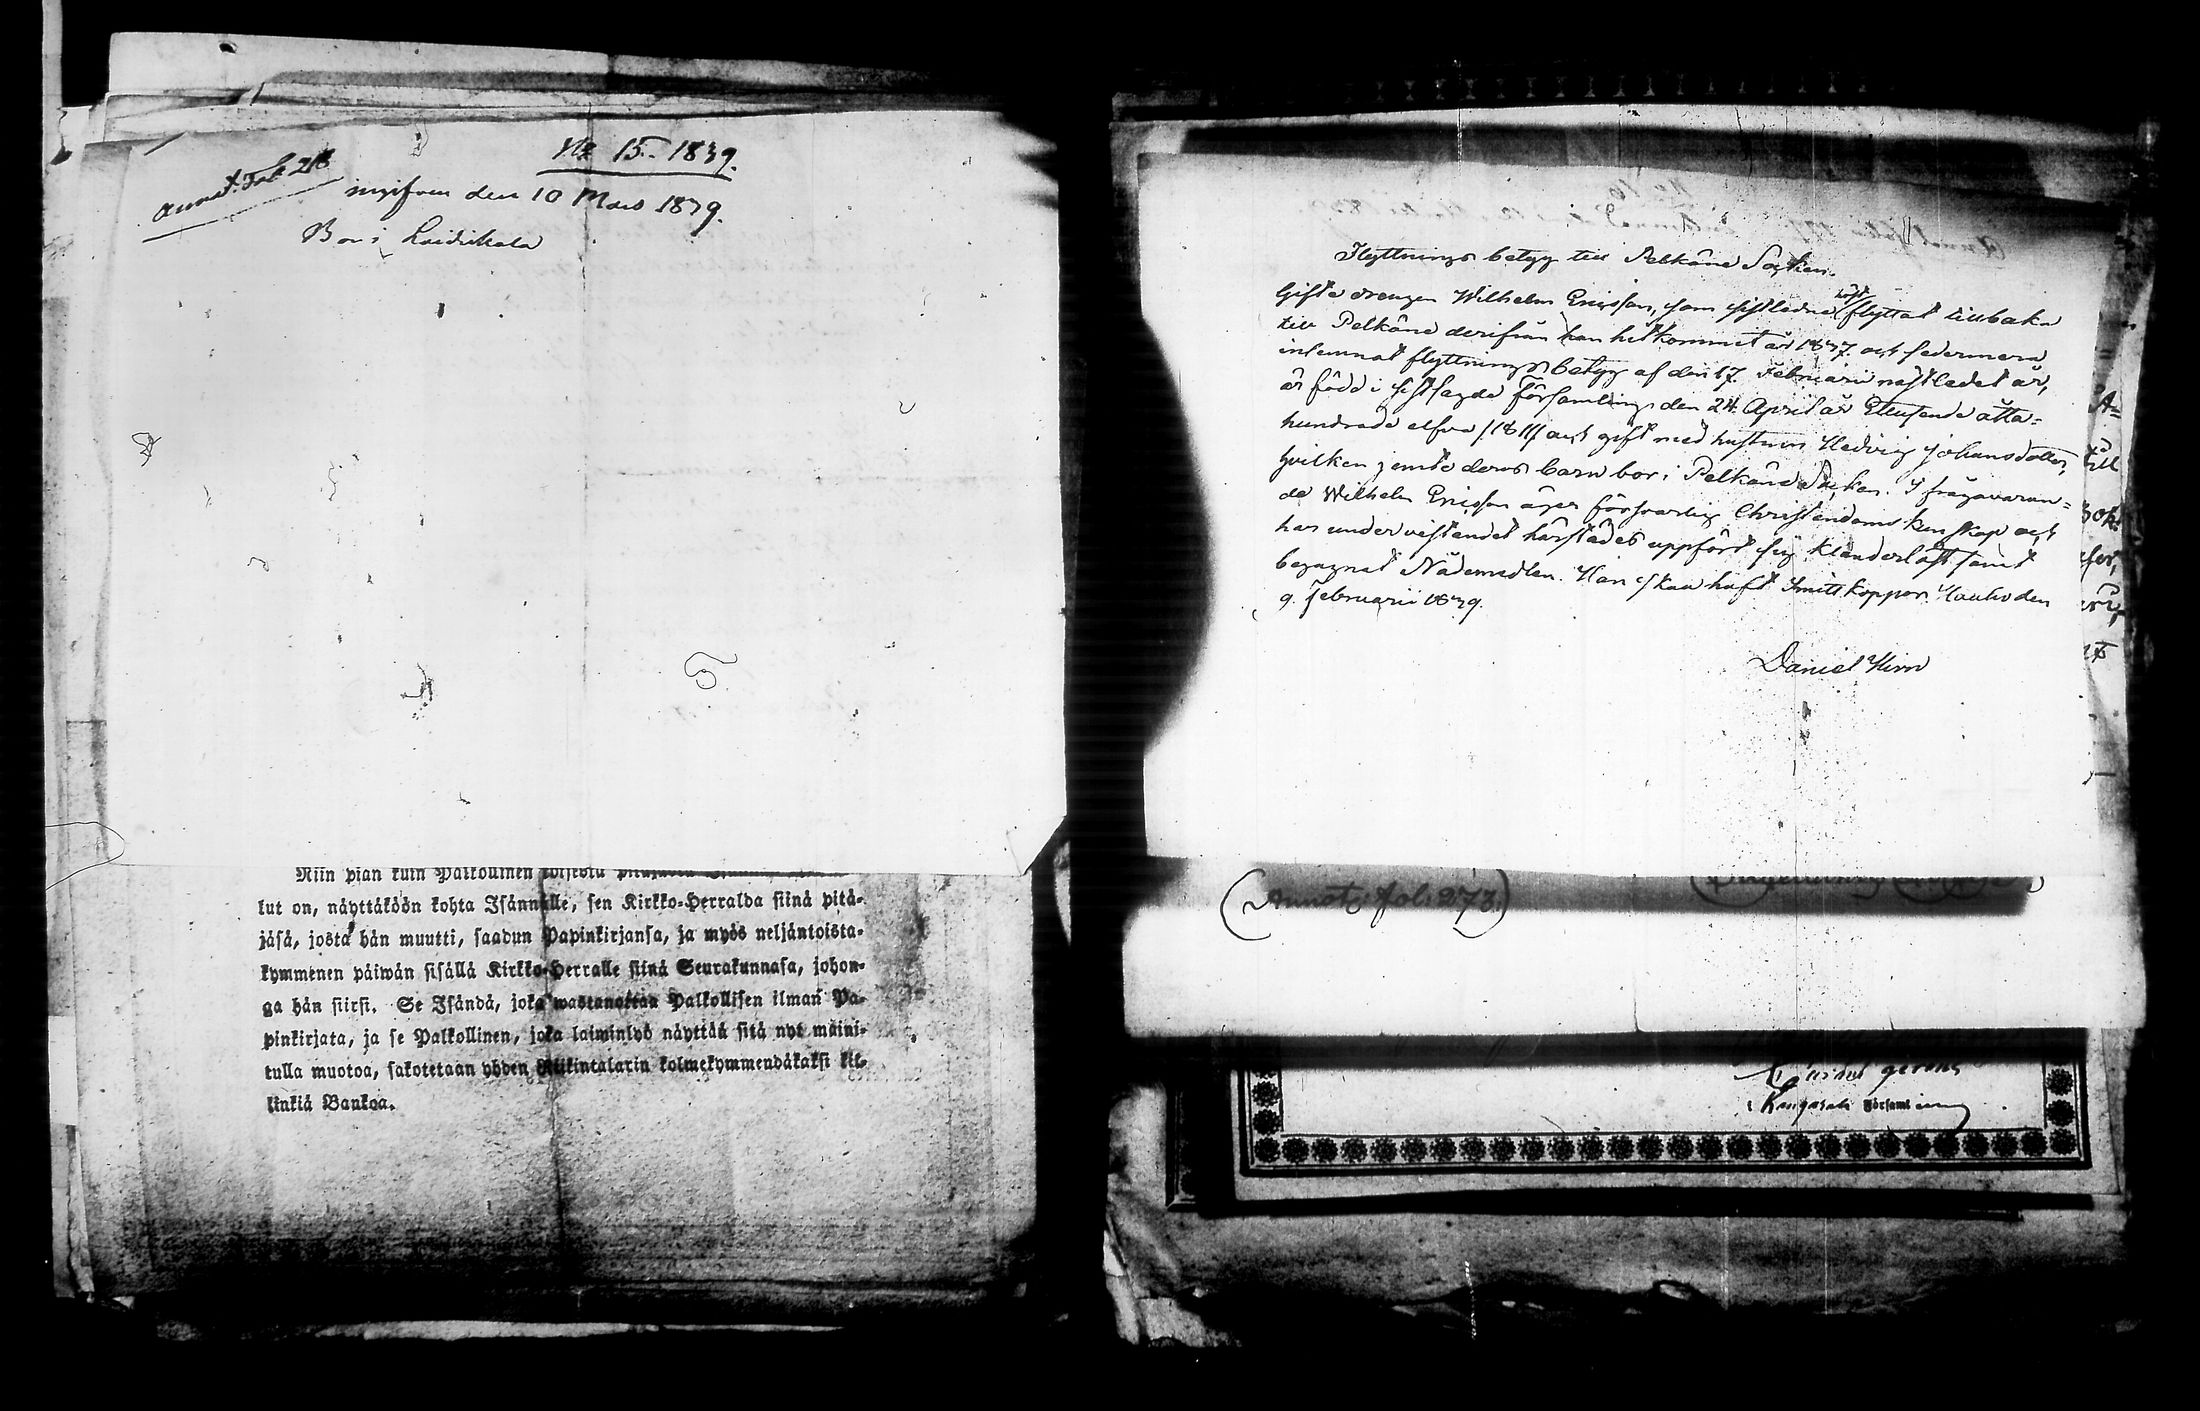 No 15. 1839.
Annot. Fol. 218
ingifven den 10 Mars 1839.
Bor i Laidikala
Niin pian kuin Palkollinen
lut on, näyttäköön kohta Isännälle, sen Kirkko-Herralda siinä pitä-
jäsä, josta hän muutti, saadun Papinkirjansa, ja myös neljäntoista-
kymmenen päiwän sisällä Kirkko-Herralle siinä Seurakunnasa, johon-
ga hän siirsi. Se Isändä, joka wastanottaa Palkollisen ilman Pa-
pinkirjata, ja se Palkollinen, joka laiminlyö näyttää sitä nyt maini-
tulla muotoa, sakotetaan yhden Riikintalarin kolmekymmendäkaksi kil-
linkiä Bankoa.
Flyttnings betyg till Pelkäne Socken.
Gifte drengen Wilhelm Ericsson, som sistledne höst flyttat tillbaka
till Pelkäne derifrån han hitkommit år 1837. och sedermera
inlemnat flyttnings betyg af den 17. Februarii nästledet år,
är född i sistsagde Församling den 24. April år Ettusende åtta-
hundrade elfva /1811/ och gift med hustrun Hedvig Johansdotter,
hvilken jemte deras barn bor i Pelkäne Socken. I frågavaran-
de Wilhelm Ericsson äger försvarlig Christendoms kunskap och
har under vistandet härstädes uppfört sig klanderlöst samt
begagnat Nådemedlen. Han skall haft Smittkoppor. Hauho den
9. Februarii 1839.
Daniel Hirn
(Annot: fol: 273.)
i Kangasala Församling